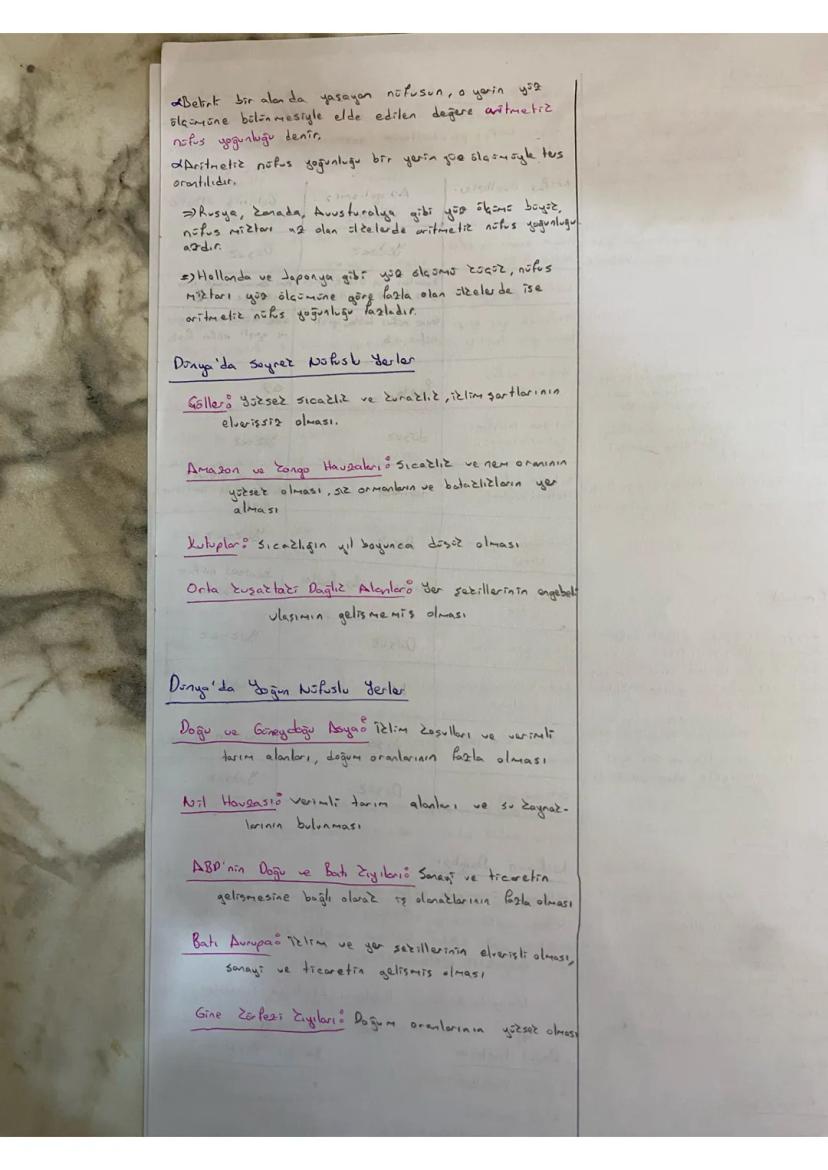 Belirli bir alanda yaşayan nüfusun, o yerin yüz
ölçümüne bölünmesiyle elde edilen değere aritmetik
nüfus yoğunluğu denir.
Aritmetik nüfus yoğunluğu bir yerin yüz ölçümüyle ters
orantılıdır.
⇒ Rusya, Kanada, Avusturalya gibi yüz ölçümü büyük,
nüfus miktarı az olan ülkelerde aritmetik nüfus yoğunluğu
azdır.
⇒ Hollanda ve Japonya gibi yüz ölçümü küçük, nüfus
miktarı yüz ölçümüne göre fazla olan ülkelerde ise
aritmetik nüfus yoğunluğu fazladır.
Dünya'da Seyrek Nüfuslu Yerler
Çöller: Yüksek sıcaklık ve kuraklık, iklim şartlarının
elverişsiz olması.
Amazon ve Kongo Havzaları: Sıcaklık ve nem oranının
yüksek olması, sık ormanların ve bataklıkların yer
alması
Kutuplar: Sıcaklığın yıl boyunca düşük olması
Orta Kuşaktaki Dağlık Alanlar: Yer şekillerinin engebeli
ulaşımın gelişmemiş olması
Dünya'da Yoğun Nüfuslu Yerler
Doğu ve Güneydoğu Asya: İklim koşulları ve verimli
tarım alanları, doğum oranlarının fazla olması
Nil Havzası: Verimli tarım alanları ve su kaynak-
larının bulunması
ABD'nin Doğu ve Batı Kıyıları: Sanayi ve ticaretin
gelişmesine bağlı olarak iş olanaklarının fazla olması
Batı Avrupa: İklim ve yer şekillerinin elverişli olması,
sanayi ve ticaretin gelişmiş olması
Gine Körfezi Kıyıları: Doğum oranlarının yüksek olması